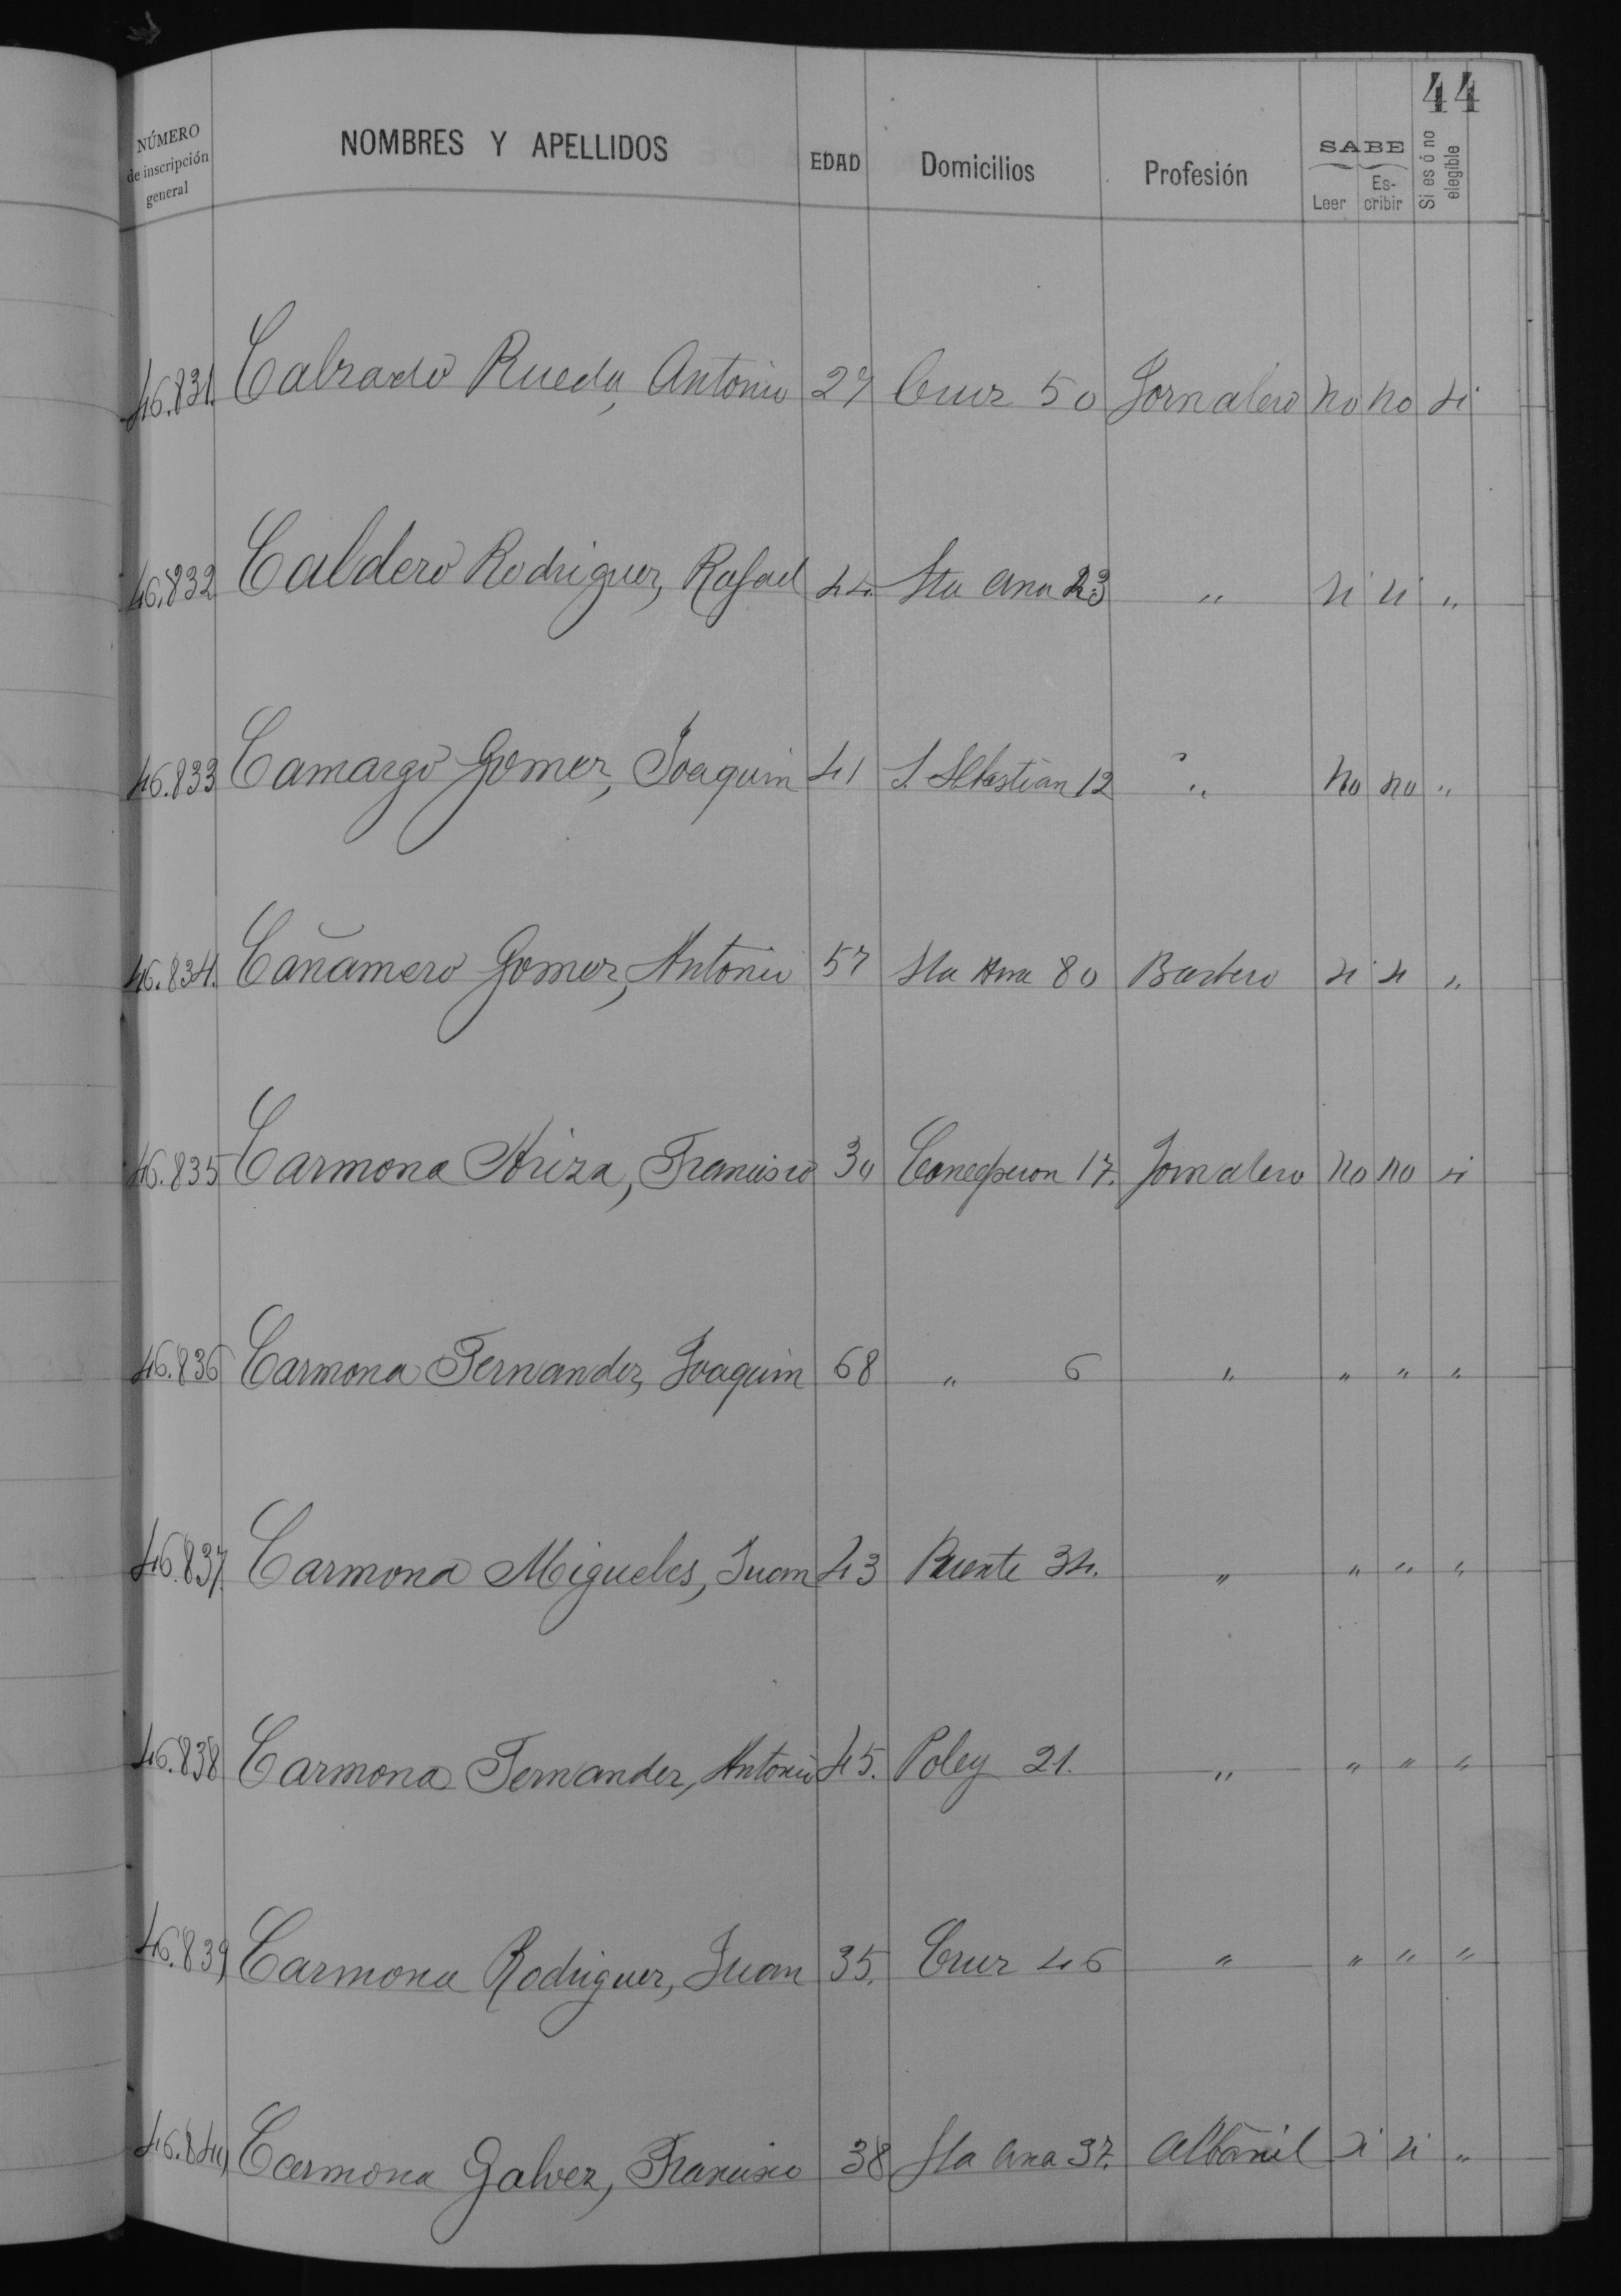 44
NÚMERO de inscripción general NOMBRES Y APELLIDOS EDAD Domicilios Profesión SABE Leer Es-cribir Si es ó no elegible
46.831. Calzado Rueda, Antonio 27 Cruz 50 Jornalero no no si
46.832 Caldero Rodriguez, Rafael 44. Sta Ana 23 " si si "
46.833 Camargo Gomez, Joaquin 41 S. Sebastian 12 " no no "
46.834. Cañamero Gomez, Antonio 57 Sta Ana 80 Barbero si si "
46.835 Carmona Ariza, Francisco 30 Concepcion 17. Jornalero no no si
46.836 Carmona Fernandez, Joaquin 68 " 6 " " " "
46.837. Carmona Migueles, Juan 43 Puente 34. " " " "
46.838 Carmona Fernandez, Antonio 45. Poley 21. " " " "
46.839 Carmona Rodriguez, Juan 35. Cruz 46 " " " "
46.840 Carmona Galvez, Francisco 38 Sta Ana 37. Albañil si si "